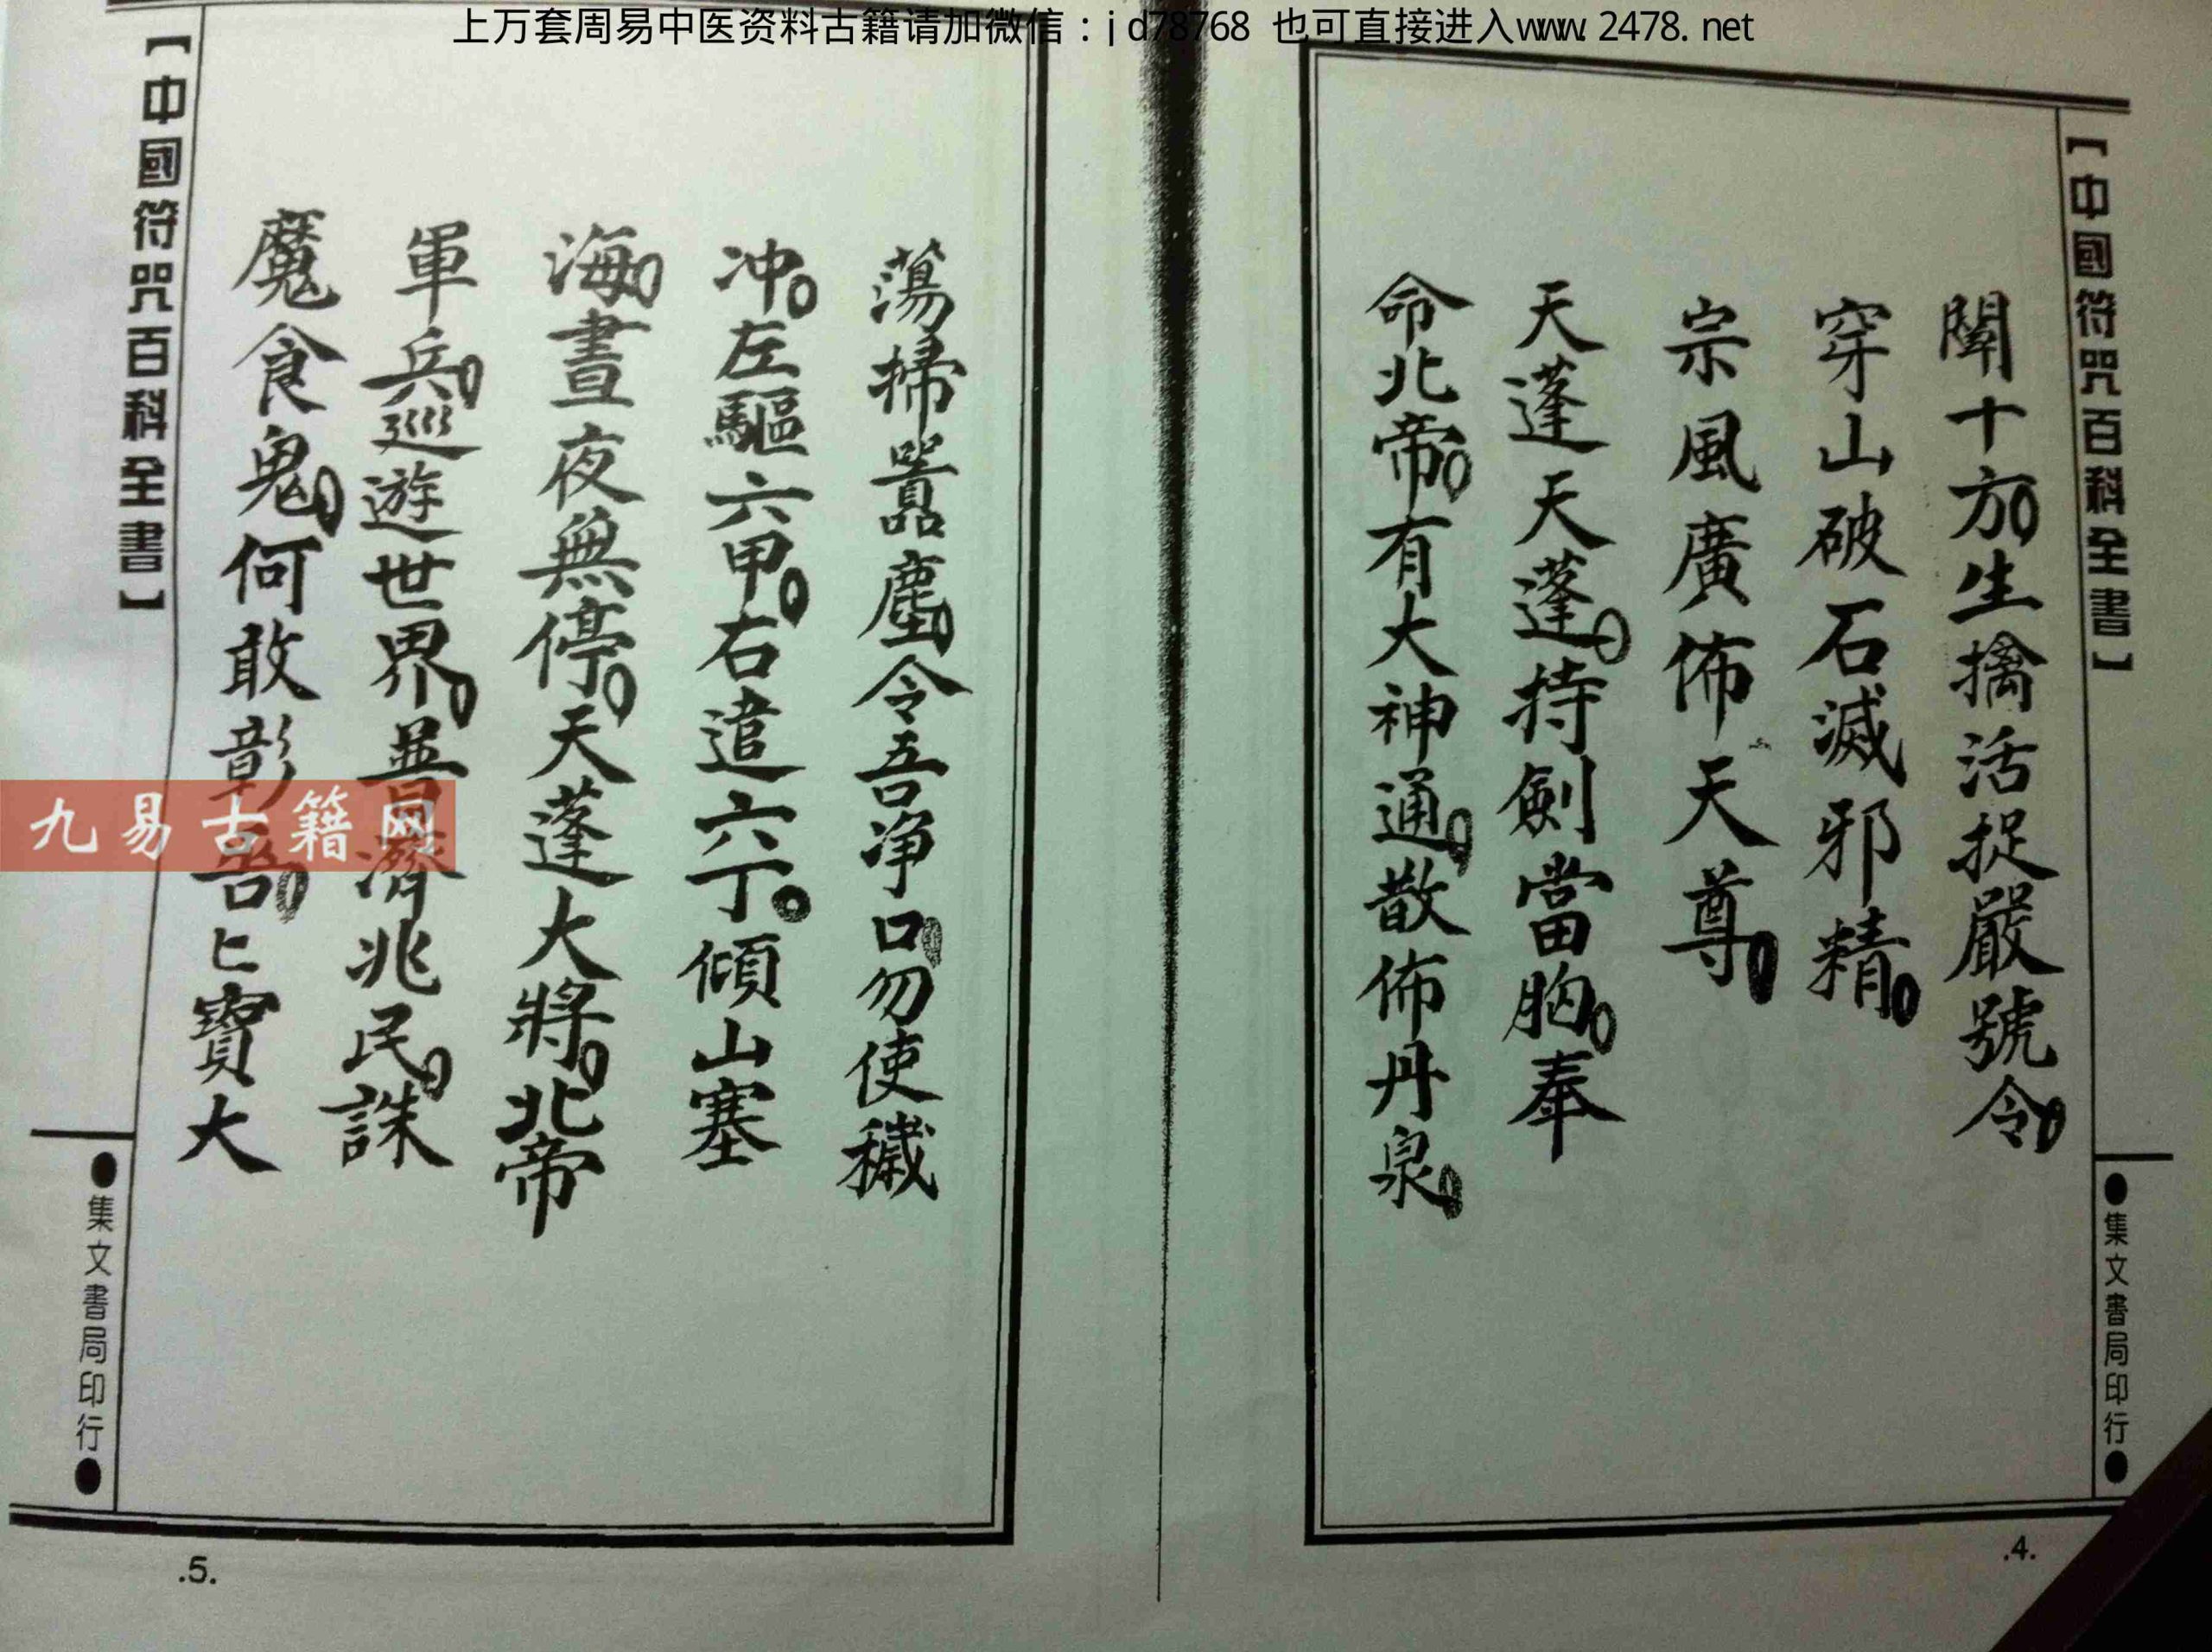 上万套周易中医资料古籍请加微信：jd78768 也可直接进入www.2478.net
【中國符咒百科全書】
闡十方。生擒活捉嚴號令。
穿山破石滅邪精。
宗風廣佈天尊。
天蓬天蓬。持劍當胸。奉
命北帝。有大神通。散佈丹泉。
●集文書局印行●
.4.
蕩掃囂塵。令吾净口。勿使穢
冲。左驅六甲。右遣六丁。傾山塞
海。晝夜無停。天蓬大將。北帝
軍兵。巡遊世界。普濟兆民。誅
魔食鬼。何敢彰吾。匕寶大
【中國符咒百科全書】
●集文書局印行●
.5.
九易古籍网